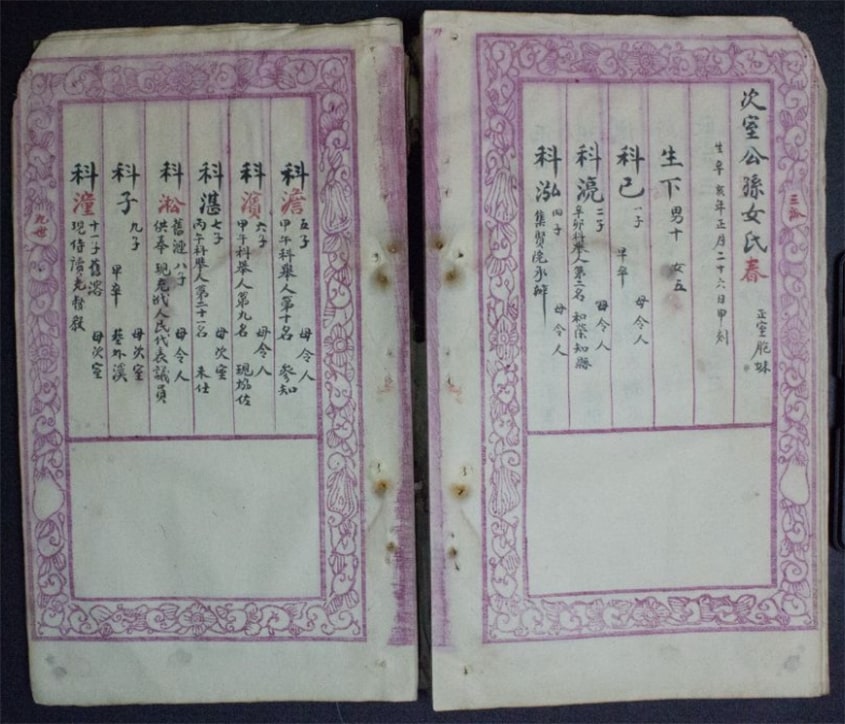 次室公孫女氏春 正室胞妹
生辛亥年正月二十六日甲刻
生下 男十 女五
科已 一子 早卒 母令人
科漉 二子 母令人
辛卯科舉人第二名 知縣
科泓 四子 母令人
集賢院承辦
三
科澹 五子 母令人
甲午科舉人第十名 參知
科濱 六子 母令人
甲午科舉人第九名 現 佐
科湛 七子 母次室
丙午科舉人第二十一名 未仕
科淞 舊漣 八子 母令人
供奉 現充 人民代表議員
科子 九子 母次室
早卒 葬外溪
科潼 十一子 舊溶 母次室
現侍讀充督敎
九世